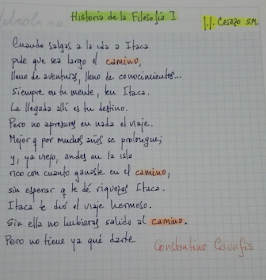 Historia de la Filosofía I
H. Cerezo S.M.
Cuando salgas a la ida a Itaca
pide que sea largo el camino,
lleno de aventuras, lleno de conocimientos...
Siempre en tu mente, ten Itaca.
La llegada allí es tu destino.
Pero no apresures en nada el viaje.
Mejor q por muchos años se prolongue;
y, ya viejo, andes en la isla
rico con cuanto ganaste en el camino,
sin esperar q te dé riquezas Itaca.
Itaca te dió el viaje hermoso.
Sin ella no hubieras salido al camino.
Pero no tiene ya qué darte.
Constantino Cavafis